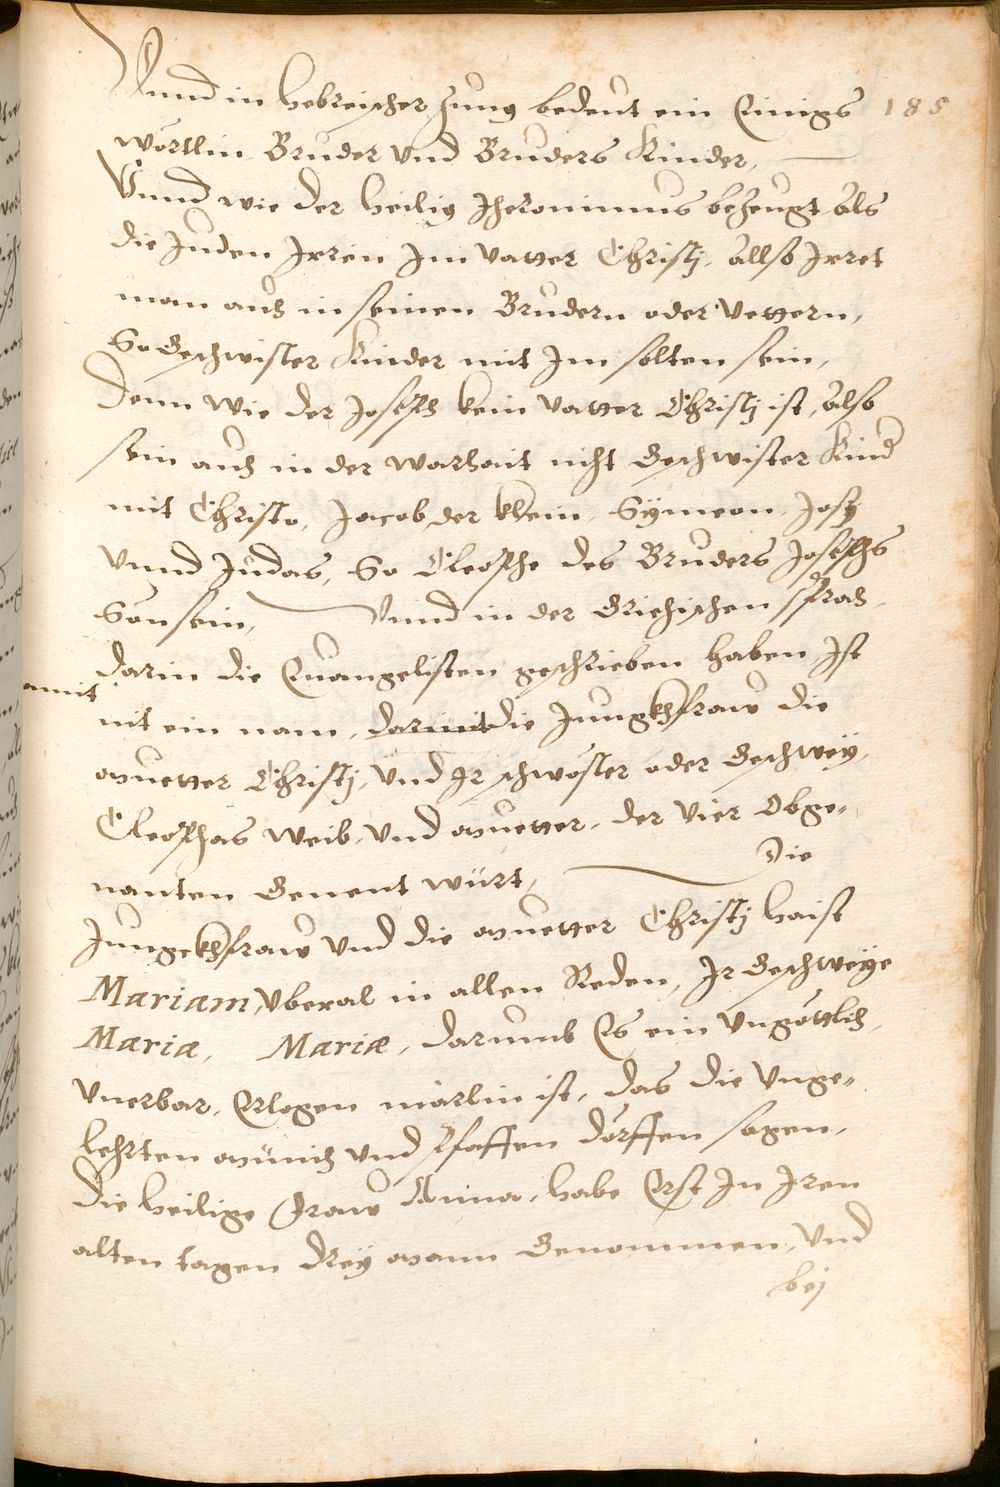 Vnnd in hebreischer zung bedeut ein Einigs 185
wörtlin Bruder vnd Bruders Kinder,
Vnnd wie der heilig Iheronimus bezeugt als
die Juden Irren Im vatter Christj, allso Irret
man auch in seinen Brudern oder Vettern,
So Geschwister Kinder mit Im solten sein,
Denn wie der Joseph kein vatter Christj ist, also
sein auch in der warhait nicht Geschwister Kind
mit Christo, Jacob der klein, Symeon, Josy
vnnd Judas, So Cleophe des Bruders Josephs
Sön sein, Vnnd in der Griechischen sprach,
darin die Euangelisten geschrieben haben Ist
amit
nit ein nam, darmit die Jungkhfraw die
muetter Christj, vnd Ir schwöster oder Geschwey,
Cleophas weib, vnd muetter, der vier Obge-
nanten Genent würt, Die
Jungekhfraw vnd die muetter Christj haist
Mariam, vberal in allen Reden, Ir Geschweye
Maria, Mariæ, darumb Es ein vngöttlich,
vnerbar, Erlogen märlin ist, das die vnge-
lehrten münich vnd Pfaffen dörffen sagen,
die heilige Fraw Anna, habe Erst In Iren
alten tagen drey mann Genommen, vnd
bej